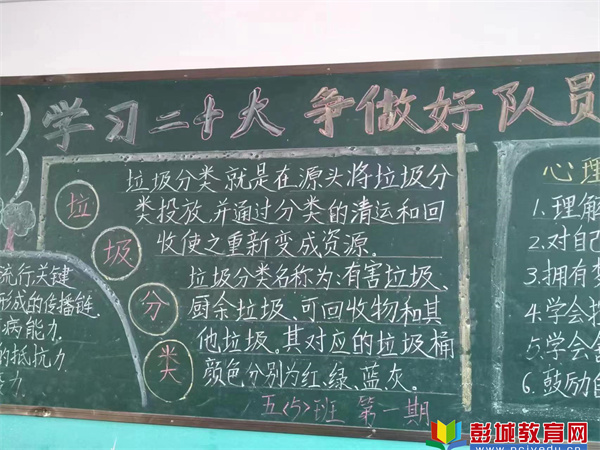 学习二十大 争做好队员
流行关键
形成的传播链.
病能力.
的抵抗力.
力.
垃
圾
分
类
垃圾分类,就是在源头将垃圾分
类投放,并通过分类的清运和回
收使之重新变成资源。
垃圾分类名称为:有害垃圾、
厨余垃圾、可回收物和其
他垃圾。其对应的垃圾桶
颜色分别为红、绿、蓝灰。
五〈5〉班 第一期
心理
1.理解
2.对自
3.拥有
4.学会
5.学会
6.鼓励
彭城教育网